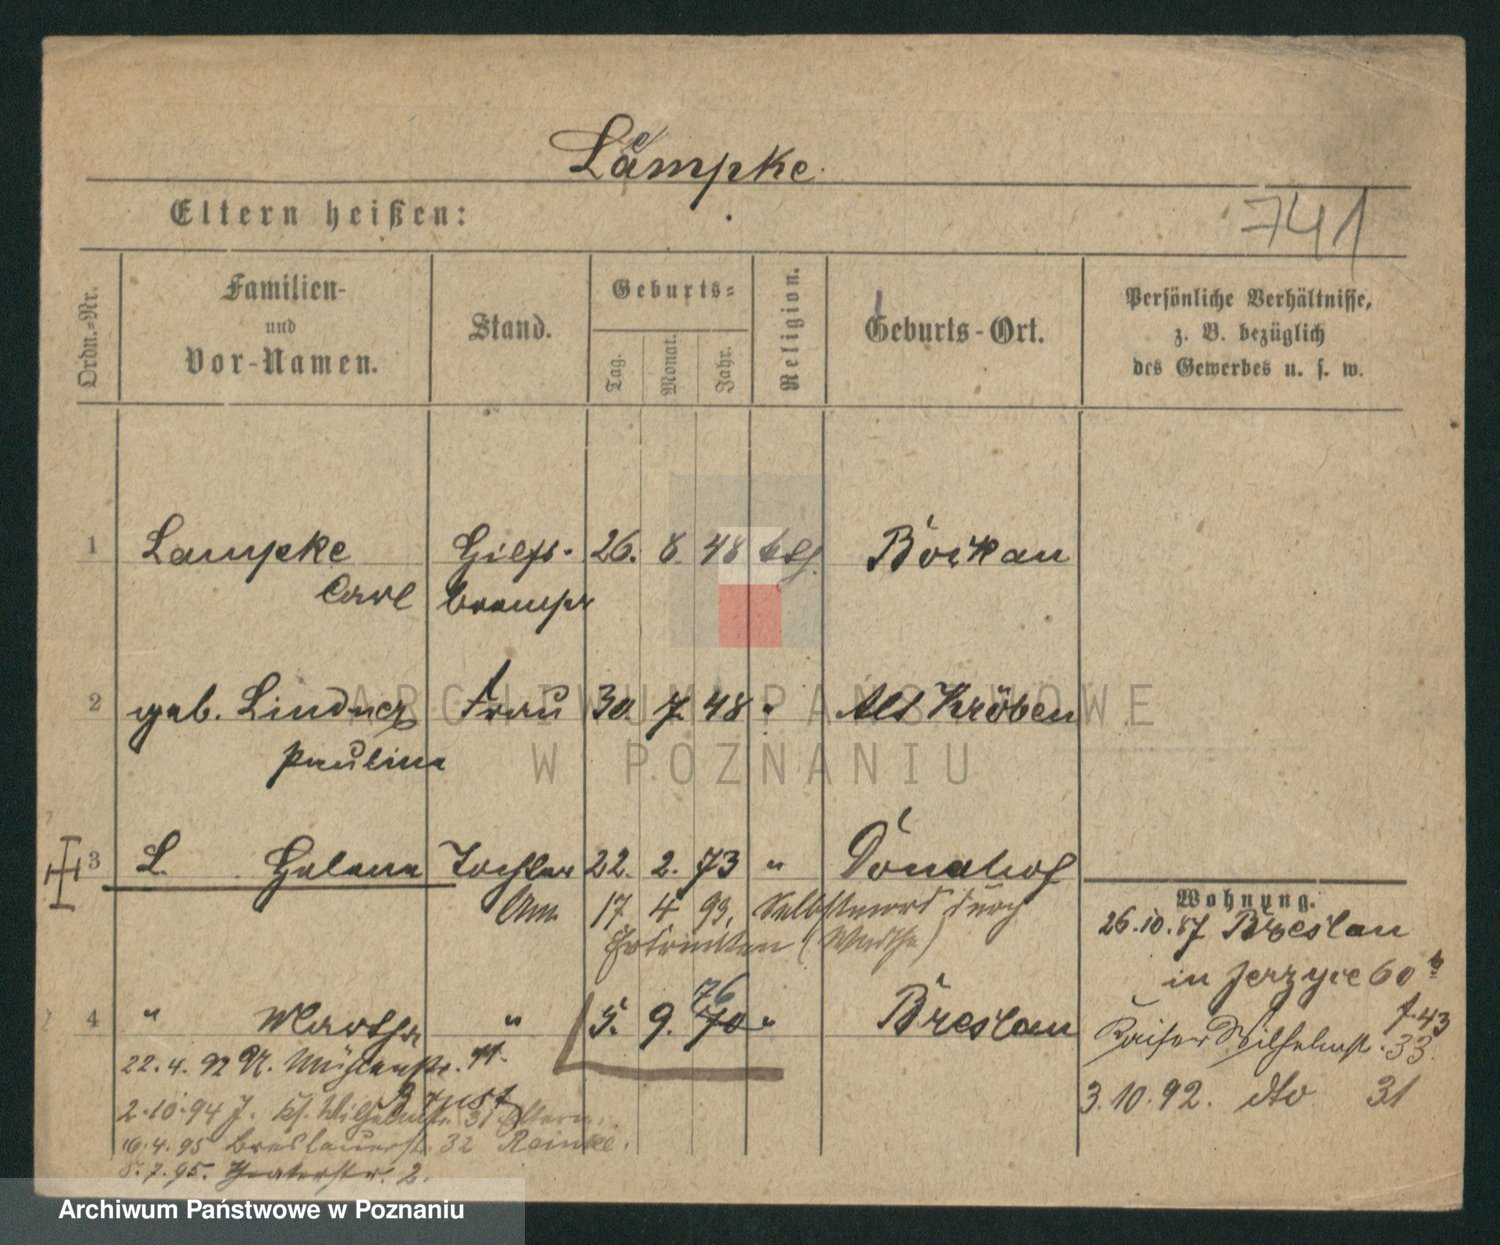 Lämpke.
Eltern heißen:
741
Ordn.=Nr.
Familien-
und
Vor-Namen.
Stand.
Geburts=
Tag.
Monat.
Jahr.
Religion.
Geburts-Ort.
Persönliche Verhältnisse,
z. B. bezüglich
des Gewerbes u. s. w.
1 Lampke Hilfs- 26. 8. 48 Bojkau
Carl
2 geb. Lindner Frau 30. 7. 48 " Alt Kröben
Pauline
3 L. Helene Tochter 22. 2. 73 " Donahof
Am 17 4 93, Selbstmord durch
Ertrinken (Warthe)
Wohnung.
26.10.87 Breslau
in Jerzyce 60
4 " Martha " 5. 9. 70 76 " Breslau
Kaiser Wilhelmst. 33.
43
22.4.92 N. Mühlenstr. 11.
3.10.92. dto 31
2.10.94 J. K. Wilhelmstr. 31 Eltern.
6.4.95 Breslauerst. 32 Reinke.
8.7.95. Theaterstr. 2.
ARCHIWUM PAŃSTWOWE
W POZNANIU
Archiwum Państwowe w Poznaniu